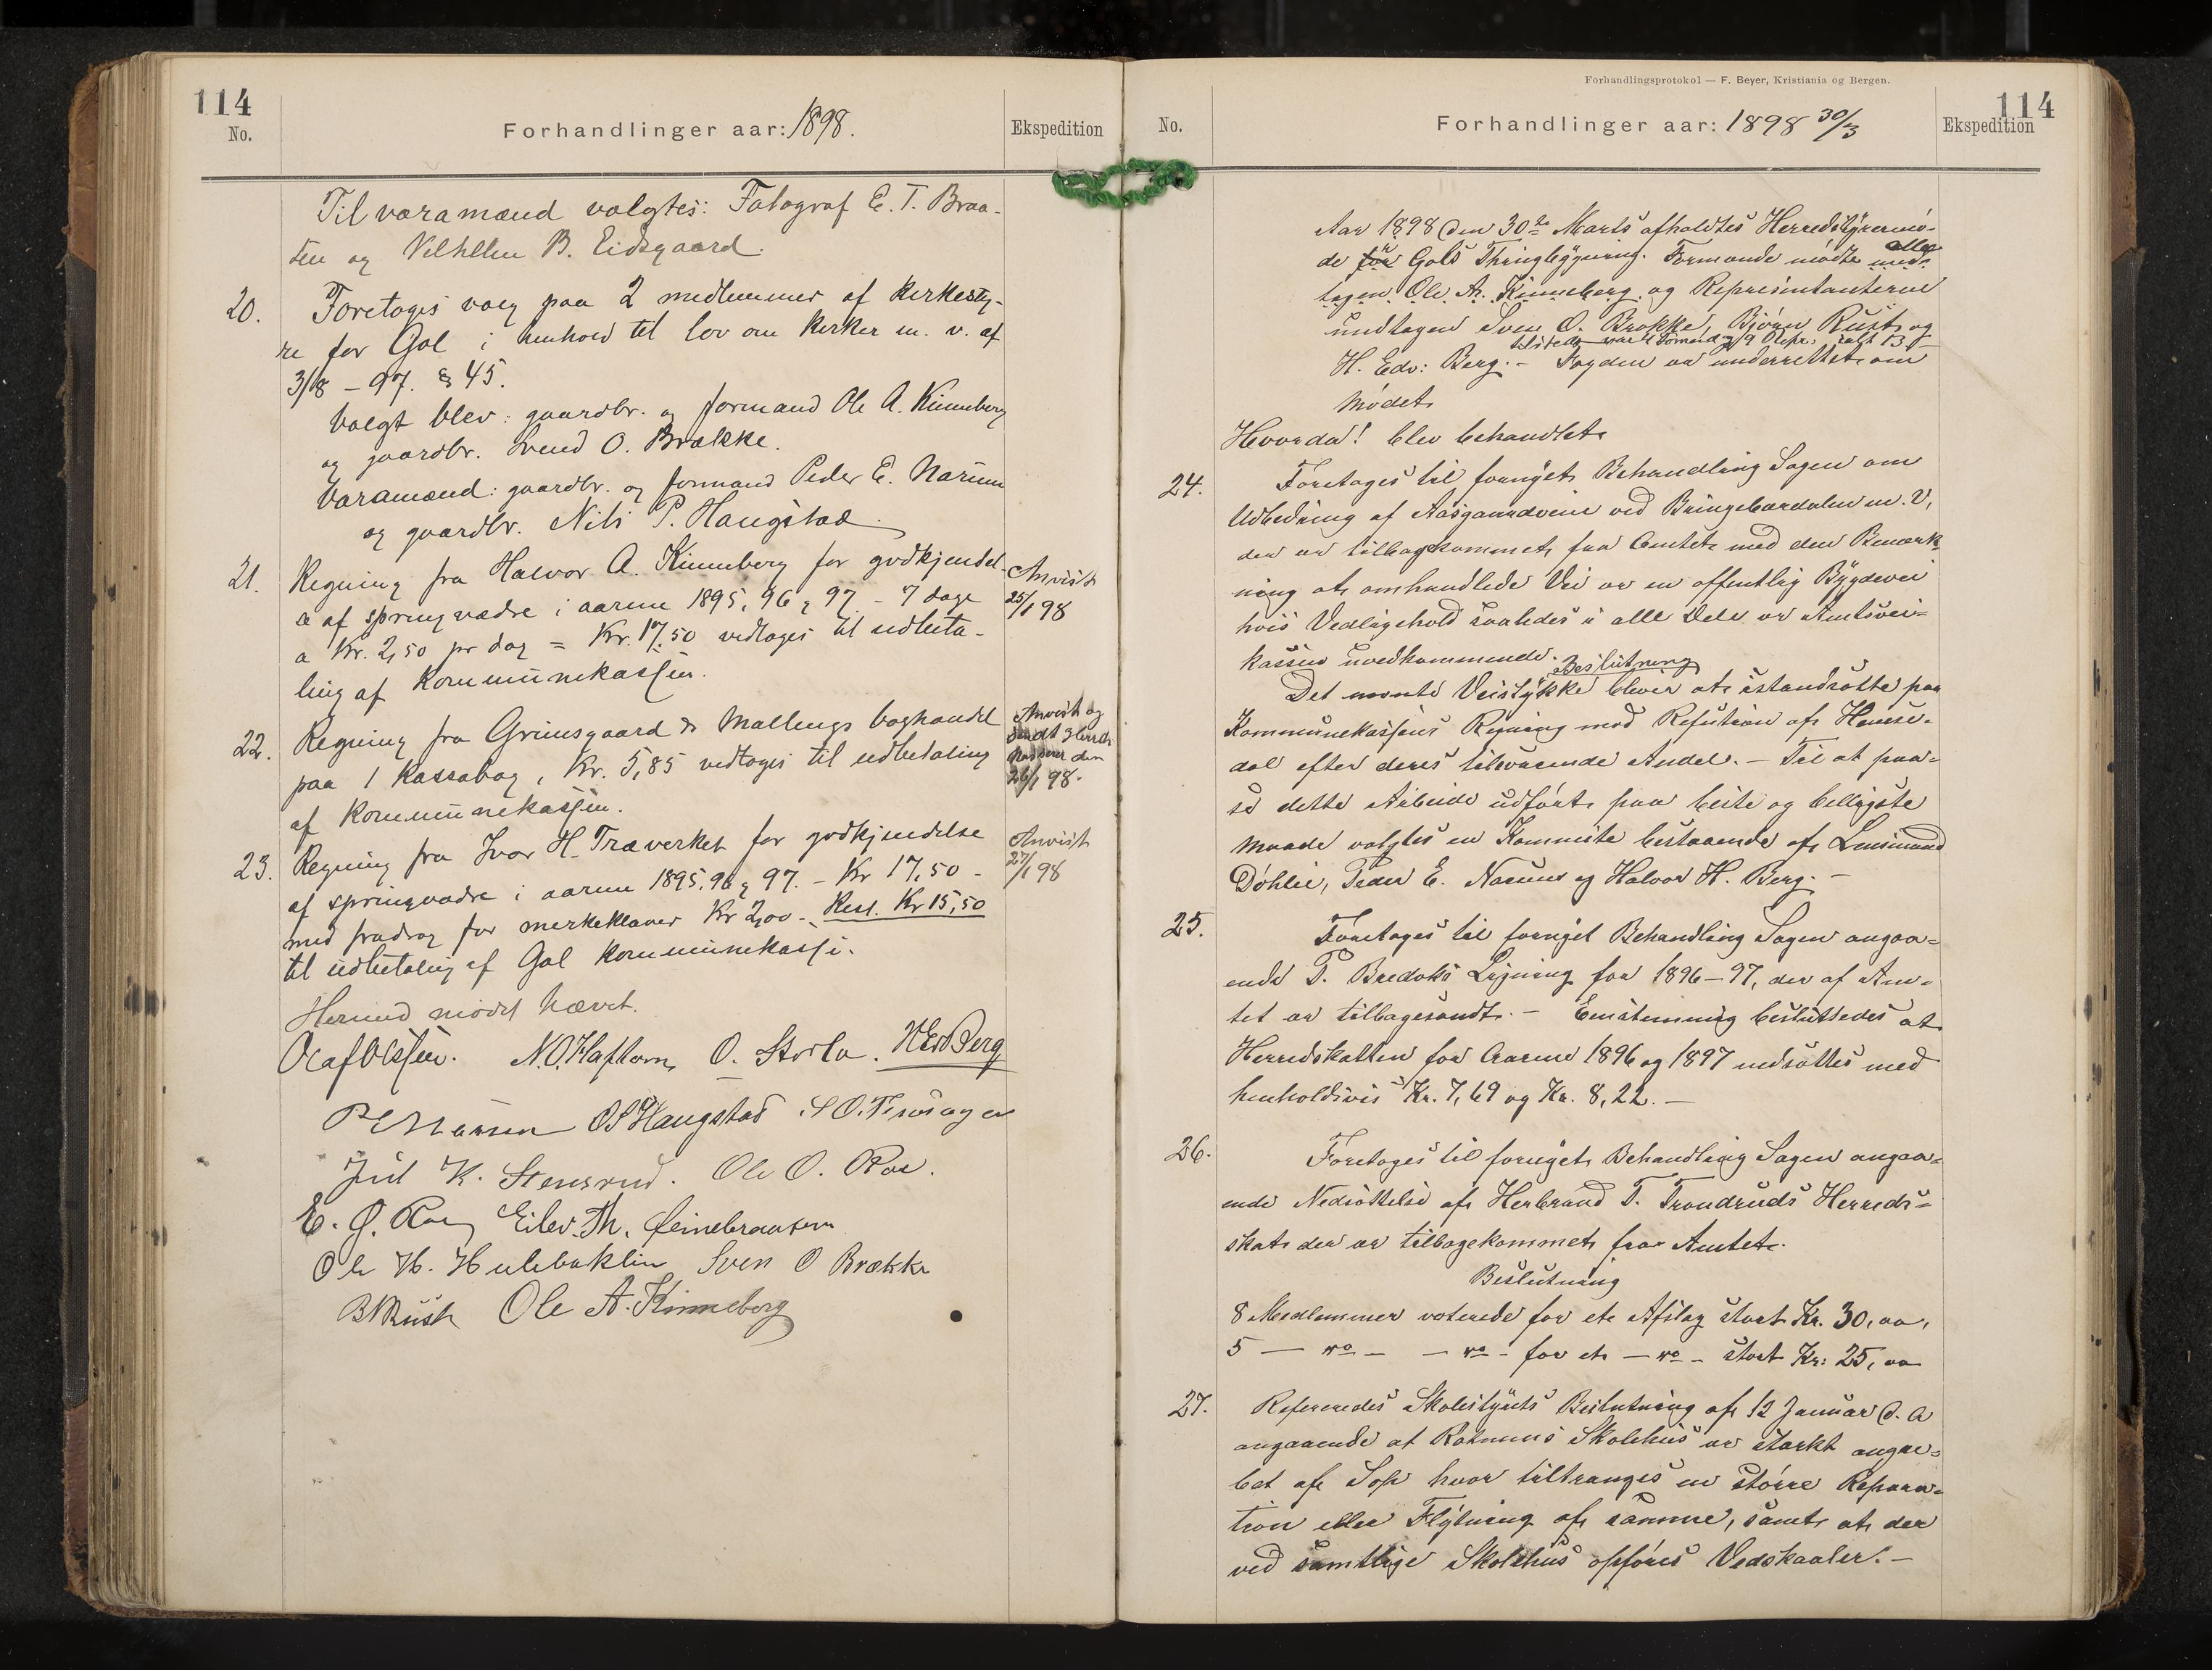 114
No.
Forhandlinger aar: 1898.
Ekspedition
Til varamænd valgtes: Fotograf E. T. Braa-
ten og Vilhelm B. Eidsgaard.
20. Foretoges valg paa 2 medlemmer af kirkesty-
re for Gol i henhold til lov om kirker m. v. af
3/8 - 97. § 45.
Valgt blev: gaardbr. og formand Ole A. Kinneberg
og gaardbr. Svend O. Brække.
Varamænd: gaardbr. og formand Peder E. Narum
og gaardbr. Nils P. Haugstad
21. Regning fra Halvor A. Kinneberg for godkjendel-
se af springvædre i aarene 1895, 96 & 97 - 7 dage
a Kr. 2,50 pr dag = Kr. 17,50 vedtoges til udbeta-
ling af Kommunekassen.
Anvist
25/1 98
22. Regning fra Grimsgaard & Mallings boghandel
paa 1 Kassabog, Kr. 5,85 vedtoges til udbetaling
af Kommunekassen.
Anvist og
sendt Herreds
kasserer den
26/1 98.
23. Regning fra Ivar H. Træverket for godkjendelse
af springvædre i aarene 1895, 96 & 97. - Kr 17,50 -
med fradrag for merkeklaver Kr 2,00 - Rest. Kr 15,50
til udbetaling af Gol Kommunekasse.
Anvist
27/1 98
Hermed mødet hævet.
Olaf Olssen. N. O. Haftorn, O. Storla. H Edv Berg
P E Narum O P Haugstad S O. Trosager
Jul K. Stensrud. Ole O. Roe.
E. G. Roe Eilev Th.
Ole H. Hulebaklin Sven O Brække
B N Rust Ole A. Kinneberg
Forhandlingsprotokol — F. Beyer, Kristiania og Bergen.
114
No.
Forhandlinger aar: 1898 30/3
Ekspedition
Aar 1898 den 30te Marts afholdtes Herredstyremø-
de for Gols Thingbygning. Formænde mødte alle und-
tagen Ole A. Kinneberg og Repræsentanterne
undtagen Sven O. Brække, Bjørn Rust og
tilstede var 4 Formænd og 9 Repr: ialt 13
H. Edv: Berg. - Fogden er underrettet om
Mødet
Hvorda! blev behandlet
24. Foretoges til fornyet Behandling Sagen om
Udbedring af Aasgaardveien ved Bringebærdalen m. V,
der er tilbagekommet fra Amtet med den Bemærk-
ning at omhandlede Vei er en offentlig Bygdevei
hvis Vedligehold saaledes i alle Dele er Amtsvei-
kassen uvedkommende.
Beslutning
Det nævnte Veistykke bliver at istandsætte paa
Kommunekassens Regning mod Refusion af Hemse-
dal efter deres tilsvarende Andel. - Til at paa-
se dette Arbeide udført paa beste og billigste
Maade valgtes en Kommite bestaaende af Lensmand
Døhlie, Peder E. Narum og Halvor H. Berg. -
25. Foretoges til fornyet Behandling Sagen angaa-
ende P. Bredoks Ligning for 1896-97, der af Am-
tet er tilbagesendt. - Enstemmig besluttedes at
Herredskatten for Aarene 1896 og 1897 nedsættes med
henholdsvis Kr. 7,69 og Kr. 8,22. -
26. Foretoges til fornyet Behandling Sagen angaa-
ende Nedsættelse af Herbrand T. Trondruds Herreds-
skat der er tilbagekommet fra Amtet.
Beslutning
8 Medlemmer voterede for et Afslag stort Kr. 30,00,
5 — " — — " - for et — " - stort Kr: 25,00
27. Refereredes Skolestyrets Beslutning af 12 Januar d. A
angaaende at Rotneims Skolehus er stærkt angre-
bet af Sop hvor tiltrænges en større Repara-
tion eller Flytning af samme, samt at der
ved samtlige Skolehus opføres Vedskaaler. -